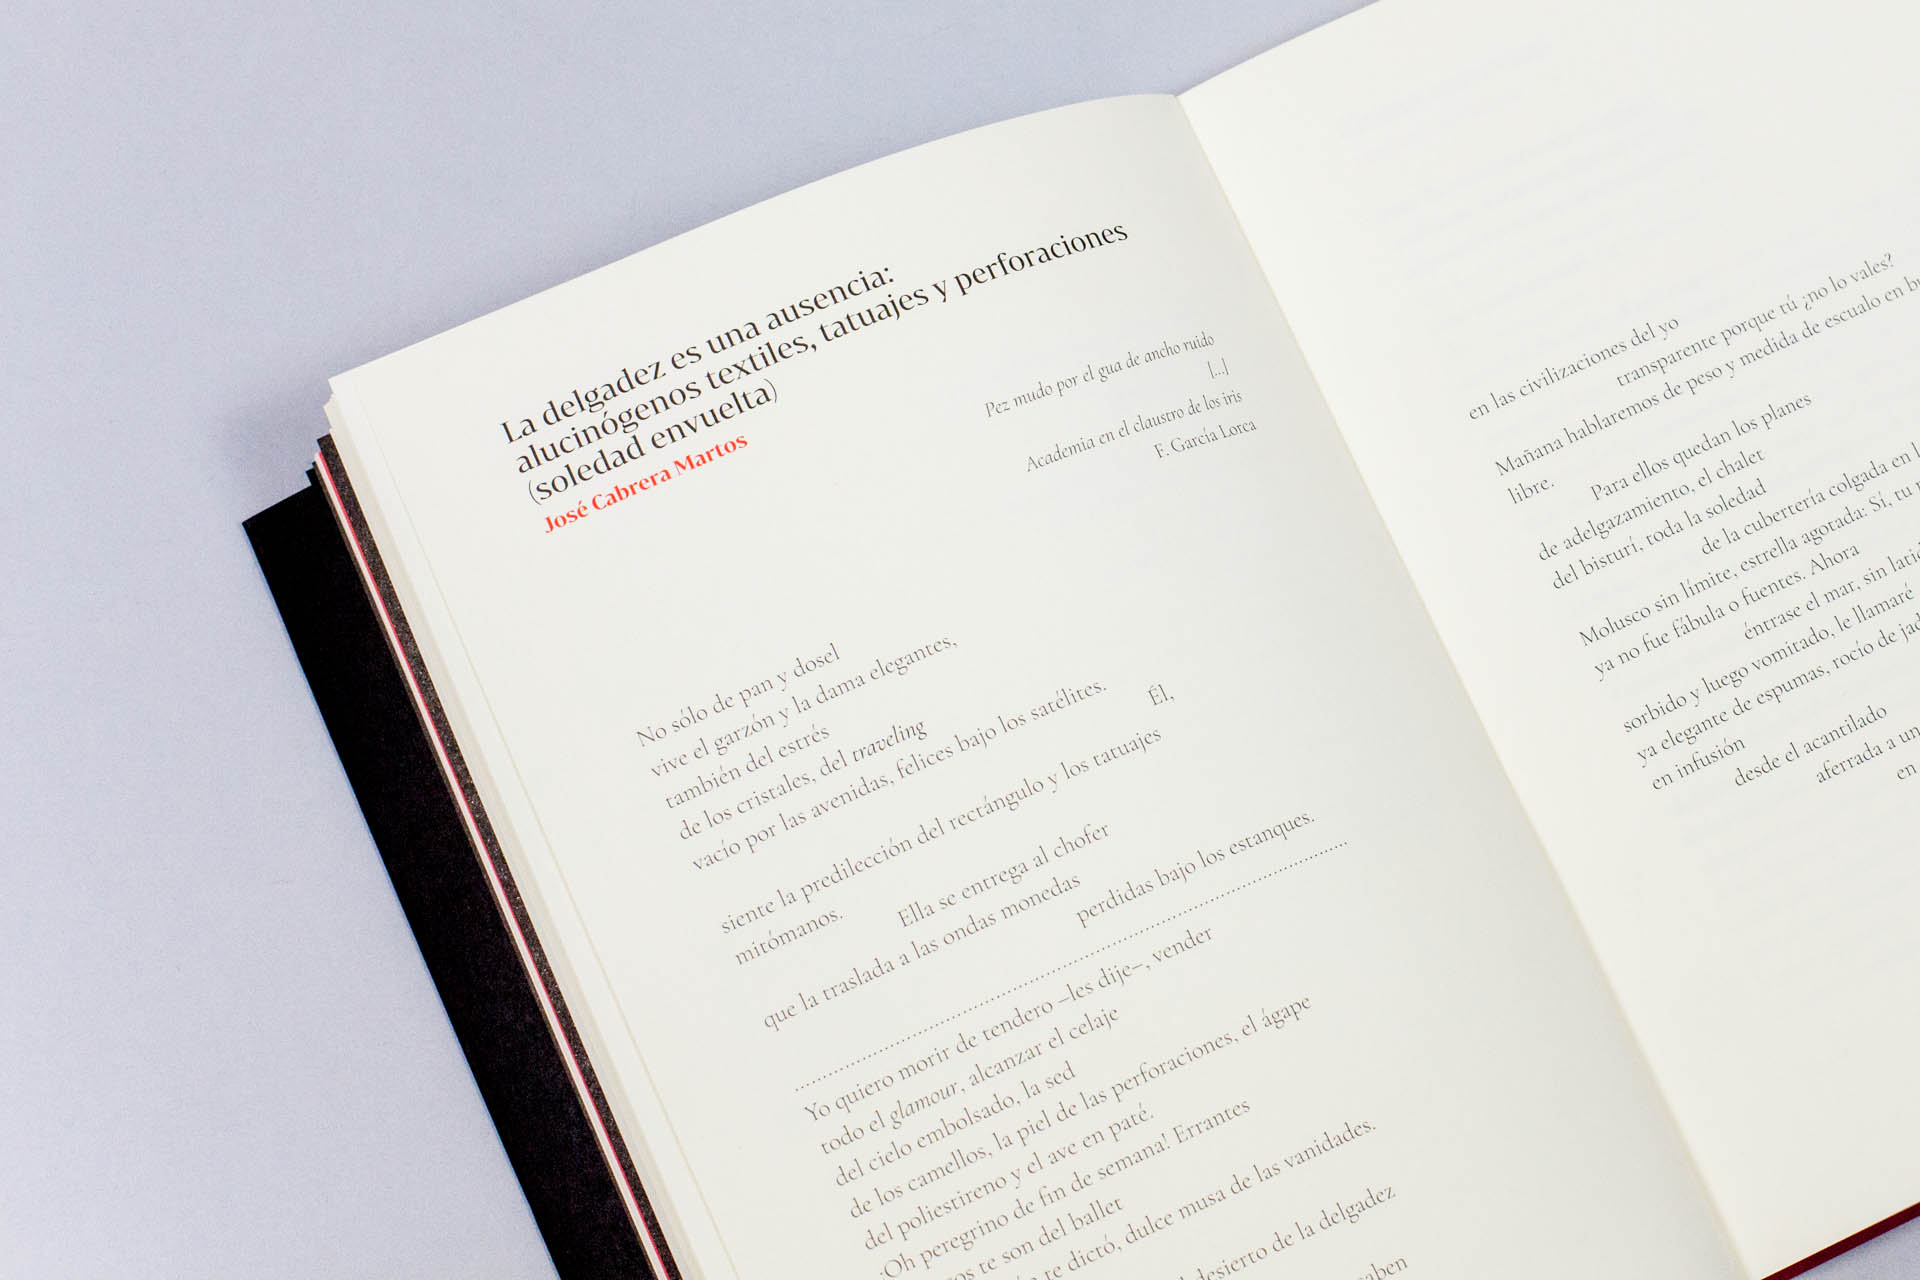 La delgadez es una ausencia:
alucinógenos textiles, tatuajes y perforaciones
(soledad envuelta)
José Cabrera Martos
Pez mudo por el gua de ancho ruido
[...]
Academia en el claustro de los iris
F. García Lorca
No sólo de pan y dosel
vive el garzón y la dama elegantes,
también del estrés
de los cristales, del traveling
vacío por las avenidas, felices bajo los satélites.
Él,
siente la predilección del rectángulo y los tatuajes
mitómanos.
Ella se entrega al chofer
que la traslada a las ondas monedas
perdidas bajo los estanques.
Yo quiero morir de tendero –les dije–, vender
todo el glamour, alcanzar el celaje
del cielo embolsado, la sed
de los camellos, la piel de las perforaciones, el ágape
del poliestireno y el ave en paté.
¡Oh peregrino de fin de semana! Errantes
te son del ballet
te dictó, dulce musa de las vanidades.
desierto de la delgadez
en las civilizaciones del yo
transparente porque tú ¿no lo vales?
Mañana hablaremos de peso y medida de escualo en
libre.
Para ellos quedan los planes
de adelgazamiento, el chalet
del bisturí, toda la soledad
de la cubertería colgada en
Molusco sin límite, estrella agotada: Sí, tu
ya no fue fábula o fuentes. Ahora
éntrase el mar, sin
sorbido y luego vomitado, le llamaré
ya elegante de espumas, rocío de
en infusión
desde el acantilado
aferrada a
en